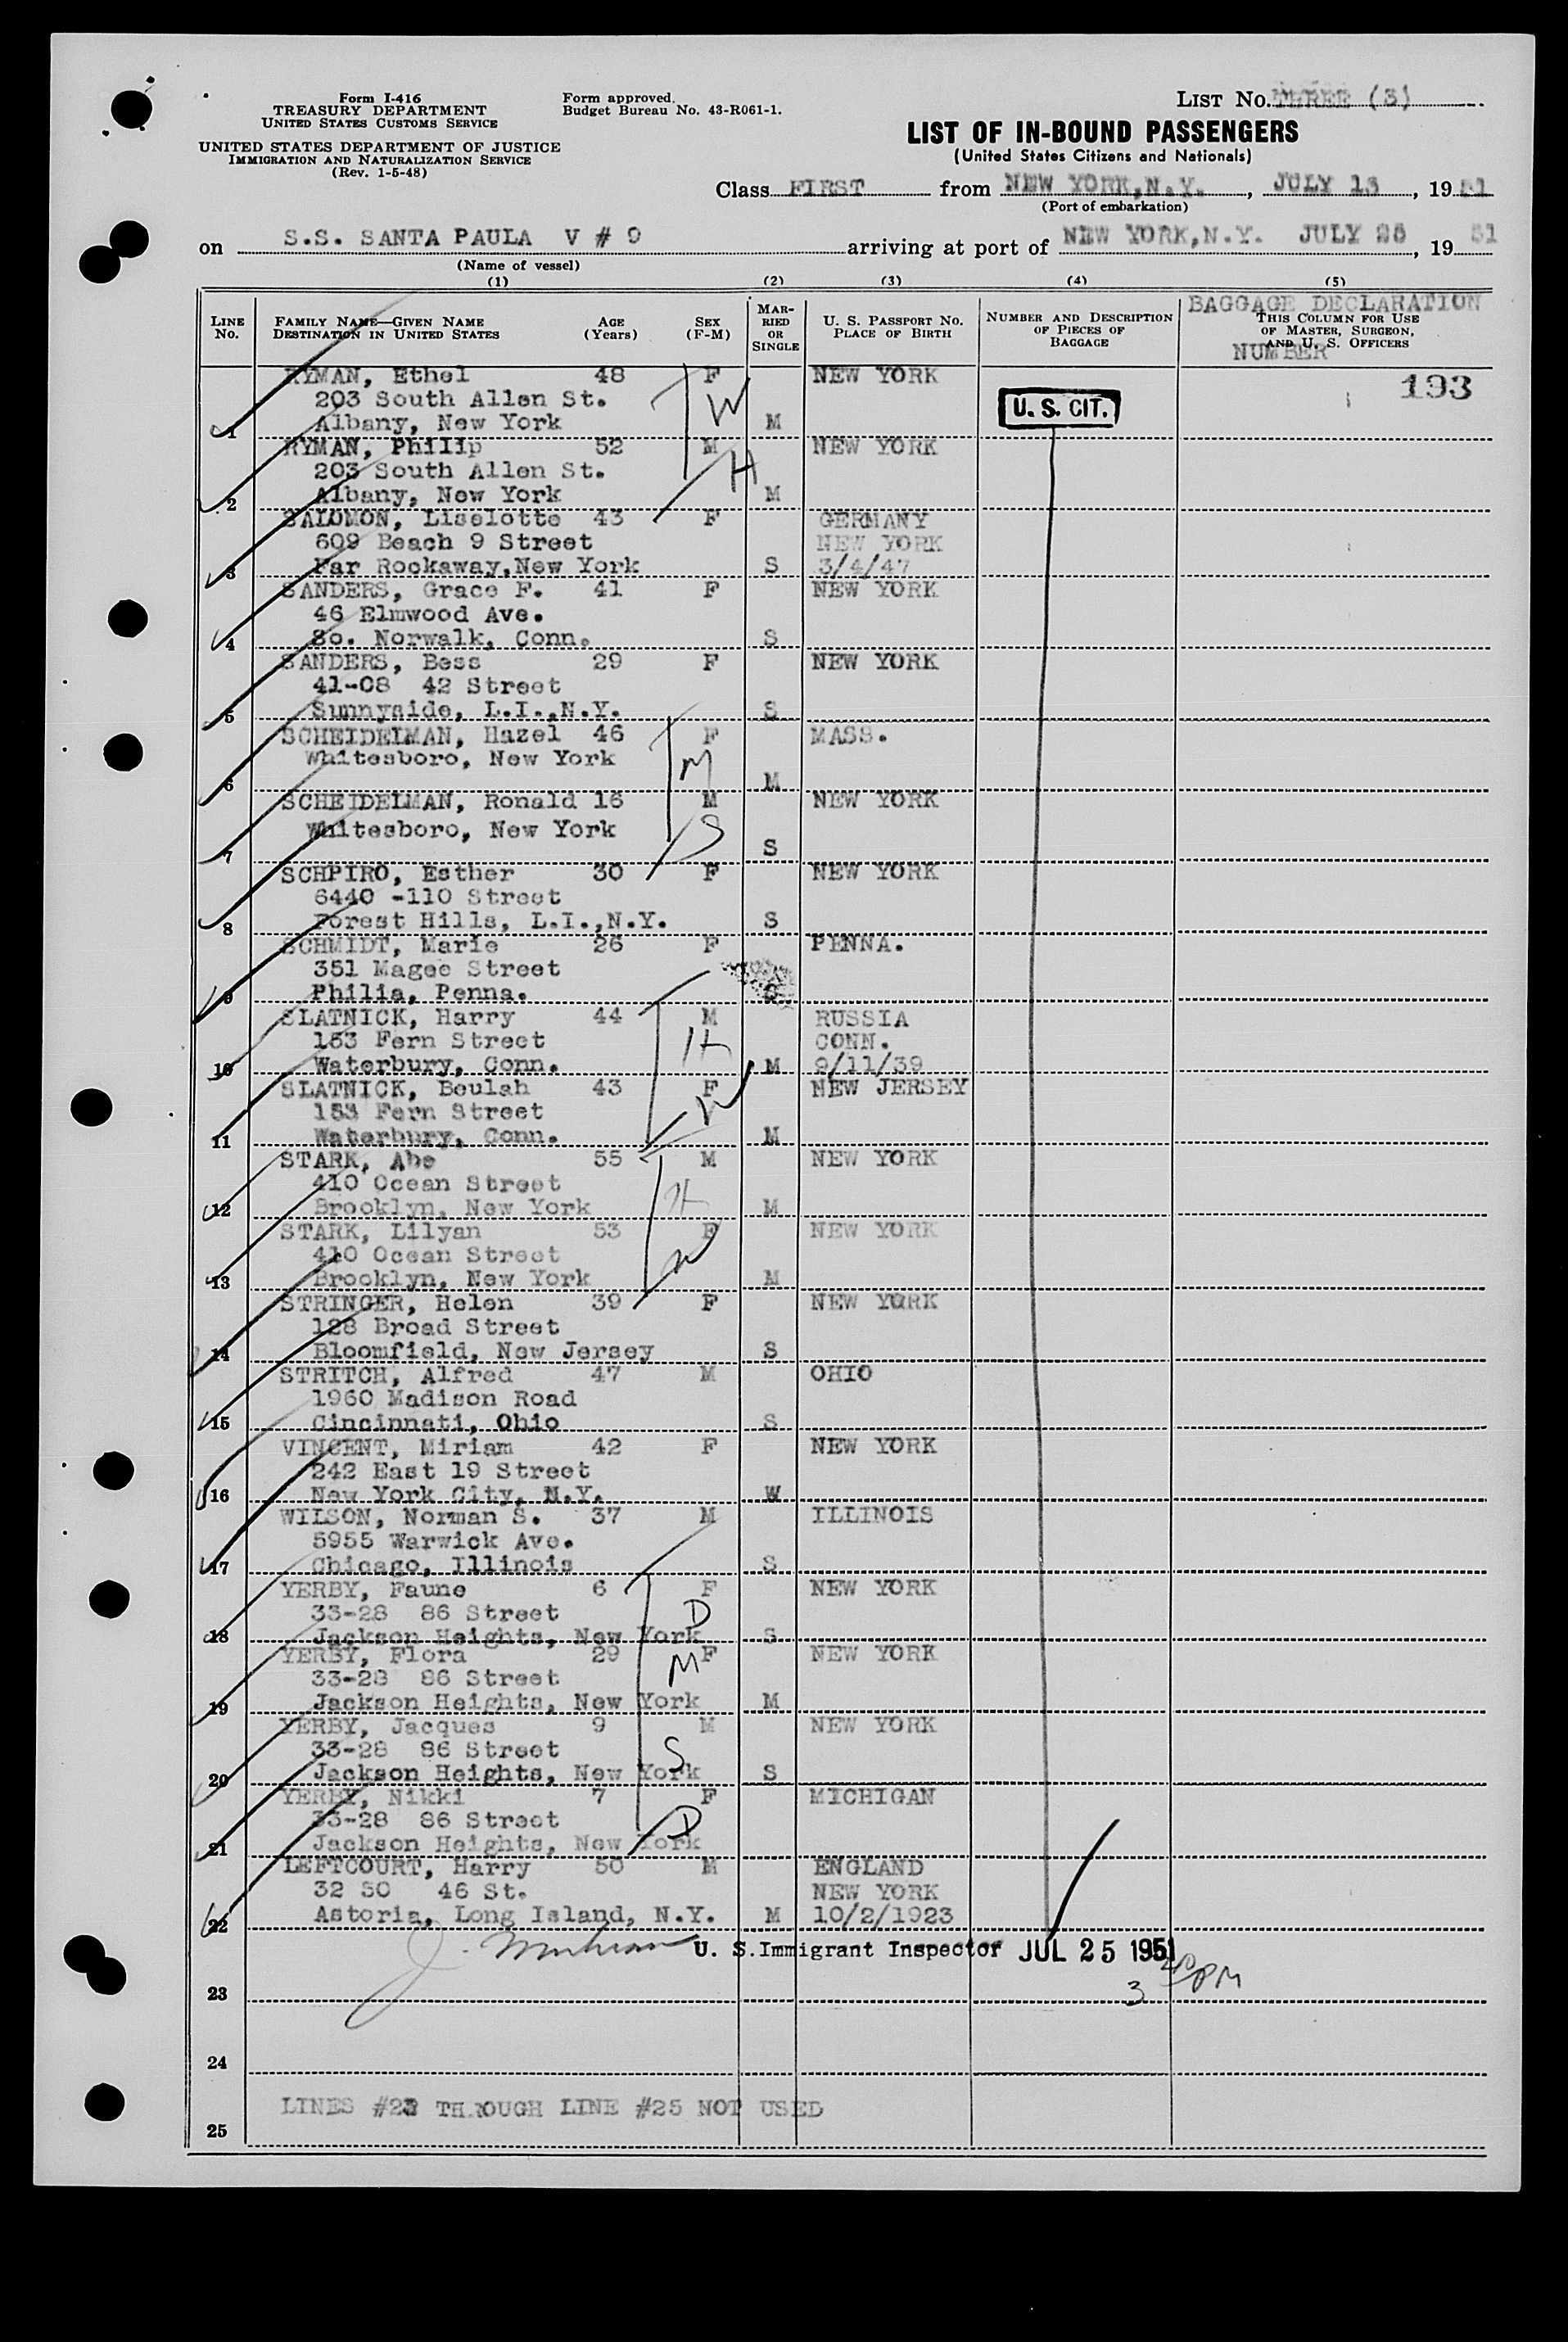 Form I-416
TREASURY DEPARTMENT
UNITED STATES CUSTOMS SERVICE
UNITED STATES DEPARTMENT OF JUSTICE
IMMIGRATION AND NATURALIZATION SERVICE
(Rev. 1-5-48)
Form approved.
Budget Bureau No. 43-R061-1.
LIST No. THREE (3)
LIST OF IN-BOUND PASSENGERS
(United States Citizens and Nationals)
Class FIRST from NEW YORK,N.Y., JULY 13, 1951
(Port of embarkation)
on S.S. SANTA PAULA V # 9 arriving at port of NEW YORK,N.Y. JULY 25, 1951
(Name of vessel)
(1) (2) (3) (4) (5)
LINE No.
FAMILY NAME—GIVEN NAME
DESTINATION IN UNITED STATES
AGE (Years)
SEX (F-M)
MARRIED OR SINGLE
U. S. PASSPORT No.
PLACE OF BIRTH
NUMBER AND DESCRIPTION OF PIECES OF BAGGAGE
BAGGAGE DECLARATION
THIS COLUMN FOR USE OF MASTER, SURGEON, AND U. S. OFFICERS
NUMBER
193
U. S. CIT.
RYMAN, Ethel 48 F NEW YORK
203 South Allen St. W
1 Albany, New York M
RYMAN, Philip 52 M NEW YORK
203 South Allen St. H
2 Albany, New York M
SALOMON, Liselotte 43 F GERMANY
609 Beach 9 Street NEW YORK
3 Far Rockaway,New York S 3/4/47
SANDERS, Grace F. 41 F NEW YORK
46 Elmwood Ave.
4 So. Norwalk, Conn. S
SANDERS, Bess 29 F NEW YORK
41-08 42 Street
5 Sunnyside, L.I.,N.Y. S
SCHEIDELMAN, Hazel 46 F MASS.
Whitesboro, New York M
6 M
SCHEIDELMAN, Ronald 16 M NEW YORK
Whitesboro, New York S
7 S
SCHPIRO, Esther 30 F NEW YORK
6440 -110 Street
8 Forest Hills, L.I.,N.Y. S
SCHMIDT, Marie 26 F PENNA.
351 Magee Street
9 Philia, Penna.
SLATNICK, Harry 44 M RUSSIA
153 Fern Street H CONN.
10 Waterbury, Conn. M 9/11/39
SLATNICK, Beulah 43 F NEW JERSEY
153 Fern Street W
11 Waterbury, Conn. M
STARK, Abe 55 M NEW YORK
410 Ocean Street H
12 Brooklyn, New York M
STARK, Lilyan 53 F NEW YORK
410 Ocean Street W
13 Brooklyn, New York M
STRINGER, Helen 39 F NEW YORK
128 Broad Street
14 Bloomfield, New Jersey S
STRITCH, Alfred 47 M OHIO
1960 Madison Road
15 Cincinnati, Ohio S
VINCENT, Miriam 42 F NEW YORK
242 East 19 Street
16 New York City, N.Y. W
WILSON, Norman S. 37 M ILLINOIS
5955 Warwick Ave.
17 Chicago, Illinois S
YERBY, Faune 6 F NEW YORK
33-28 86 Street D
18 Jackson Heights, New York S
YERBY, Flora 29 F NEW YORK
33-28 86 Street M
19 Jackson Heights, New York M
YERBY, Jacques 9 M NEW YORK
33-28 86 Street S
20 Jackson Heights, New York S
YERBY, Nikki 7 F MICHIGAN
33-28 86 Street D
21 Jackson Heights, New York
LEFTCOURT, Harry 50 M ENGLAND
32 50 46 St. NEW YORK
22 Astoria, Long Island, N.Y. M 10/2/1923
U. S. Immigrant Inspector JUL 25 1951
3 PM
23
24
LINES #23 THROUGH LINE #25 NOT USED
25